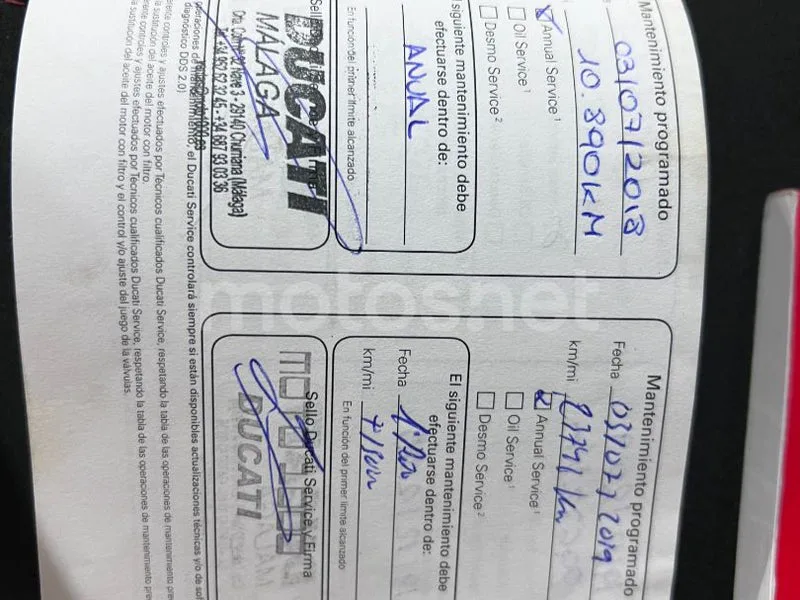 Mantenimiento programado
03/07/2018
10.890KM
Annual Service¹
Oil Service¹
Desmo Service²
El siguiente mantenimiento debe
efectuarse dentro de:
ANUAL
En función del primer límite alcanzado
DUCATI
MALAGA
Tel +34 952 62 32 45 - +34 687 93 03 36
diagnóstico DDS 2.0)
Mantenimiento programado
Fecha 03/07/2019
km/mi
Annual Service¹
Oil Service¹
Desmo Service²
El siguiente mantenimiento debe
efectuarse dentro de:
Fecha
km/mi
En función del primer límite alcanzado
Sello Ducati Service y Firma
DUCATI
el Ducati Service controlará siempre si están disponibles actualizaciones técnicas y/o de
controles y ajustes efectuados por Técnicos cualificados Ducati Service, respetando la tabla de las operaciones de mantenimiento
la sustitución del aceite del motor con filtro.
controles y ajustes efectuados por Técnicos cualificados Ducati Service, respetando la tabla de las operaciones de mantenimiento
la sustitución del aceite del motor con filtro y el control y/o ajuste del juego de la válvulas.
motosnet